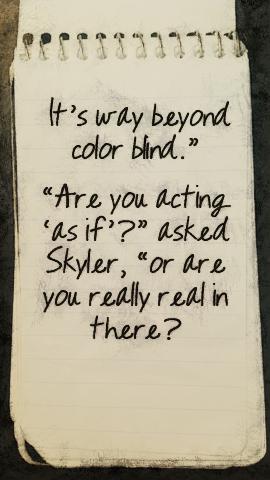 It's way beyond
color blind."
"Are you acting
'as if'?" asked
Skyler, "or are
you really real in
there?